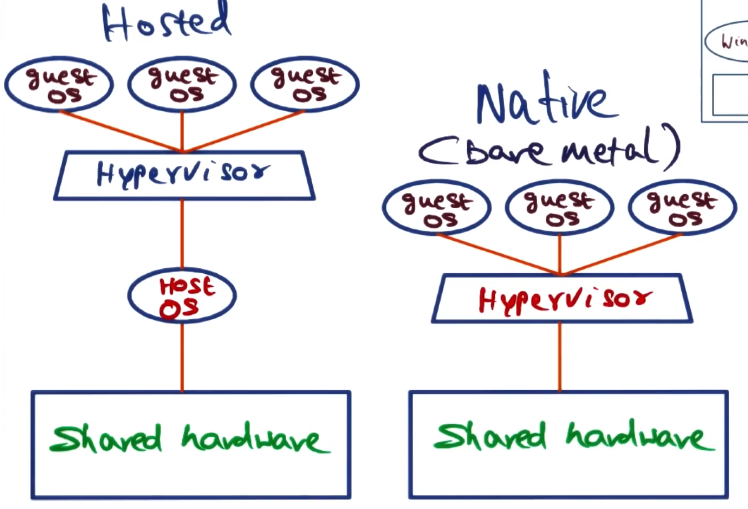 Hosted
guest
OS
guest
OS
guest
OS
Hypervisor
Host
OS
Shared hardware
Native
(Bare metal)
guest
OS
guest
OS
guest
OS
Hypervisor
Shared hardware